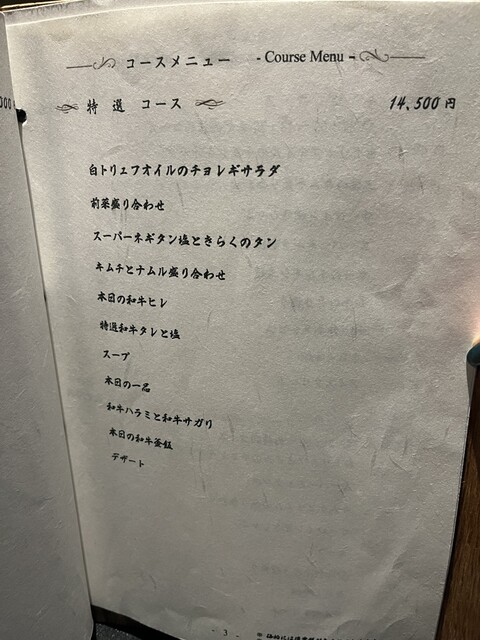 コースメニュー - Course Menu -
特選 コース 14,500円
白トリュフオイルのチョレギサラダ
前菜盛り合わせ
スーパーネギタン塩ときらくのタン
キムチとナムル盛り合わせ
本日の和牛ヒレ
特選和牛タレと塩
スープ
本日の一品
和牛ハラミと和牛サガリ
本日の和牛釜飯
デザート
- 3 -